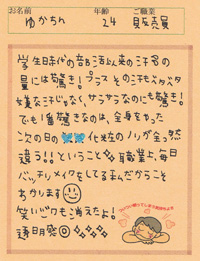 お名前 年齢 ご職業
ゆかちん 24 販売員
学生時代の部活以来の汗の
量には驚き!プラスその汗もベタベタ
嫌な汗じゃなく、サラサラなのにも驚き!
でも1番驚きなのは、全身をやった
次の日の化粧のノリが全っ然
違う!!ということ 職業上、毎日
バッチリメイクをしてる私だからこそ
わかります
笑いジワも消えたよ!
透明感◎